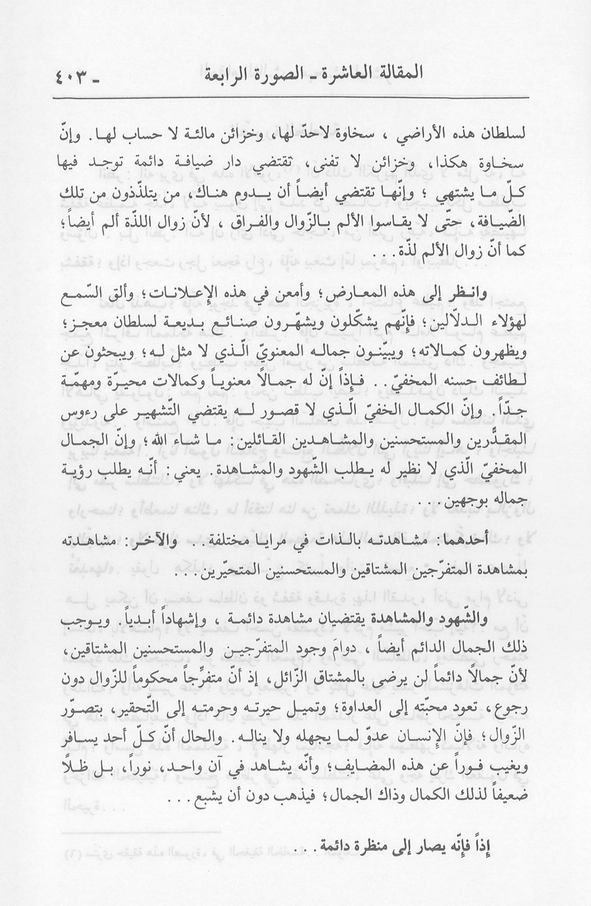 المقالة العاشرة ـ الصورة الرابعة
ـ ٤٠٣
لسلطان هذه الأراضي ، سخاوة لاحدّ لها، وخزائن مالئة لا حساب لها. وإنّ
سخاوة هكذا، وخزائن لا تفنى، تقتضي دار ضيافة دائمة توجد فيها
كلّ ما يشتهي ؛ وإنّها تقتضي أيضاً أن يدوم هناك، من يتلذّذون من تلك
الضّيافة، حتّى لا يقاسوا الألم بالزّوال والفراق ، لأنّ زوال اللذّة ألم أيضاً؛
كما أنّ زوال الألم لذّة...
وانظر إلى هذه المعارض؛ وأمعن في هذه الإعلانات؛ وألق السّمع
لهؤلاء الدلّالين؛ فإنّهم يشكّلون ويشهّرون صنائع بديعة لسلطان معجز؛
ويظهرون كمالاته؛ ويبيّنون جماله المعنويّ الّذي لا مثل له؛ ويبحثون عن
لطائف حسنه المخفيّ.. فإذاً إنّ له جمالاً معنوياً وكمالات محيرّة ومهمّة
جدّاً. وإنّ الكمال الخفيّ الّذي لا قصور له يقتضي التّشهير على رءوس
المقدُّرين والمستحسنين والمشاهدين القائلين: ما شاء الله؛ وإنّ الجمال
المخفيّ الّذي لا نظير له يطلب الشّهود والمشاهدة. يعني: أنّه يطلب رؤية
جماله بوجهين...
أحدهما: مشاهدته بالذات في مرايا مختلفة.. والآخر: مشاهدته
بمشاهدة المتفرّجين المشتاقين والمستحسنين المتحيّرين...
والشّهود والمشاهدة يقتضيان مشاهدة دائمة ، وإشهاداً أبدياً. ويوجب
ذلك الجمال الدائم أيضاً ، دوام وجود المتفرّجين والمستحسنين المشتاقين،
لأنّ جمالاً دائماً لن يرضى بالمشتاق الزّائل، إذ أنّ متفرِّجاً محكوماً للزّوال دون
رجوع، تعود محبّته إلى العداوة؛ وتميل حيرته وحرمته إلى التّحقير، بتصوّر
الزّوال؛ فإنّ الإنسان عدوّ لما يجهله ولا يناله. والحال أنّ كلّ أحد يسافر
ويغيب فوراً عن هذه المضايف؛ وأنّه يشاهد في آن واحد، نوراً، بل ظلّاً
ضعيفاً لذلك الكمال وذاك الجمال؛ فيذهب دون أن يشبع...
إذاً فإنّه يصار إلى منظرة دائمة...